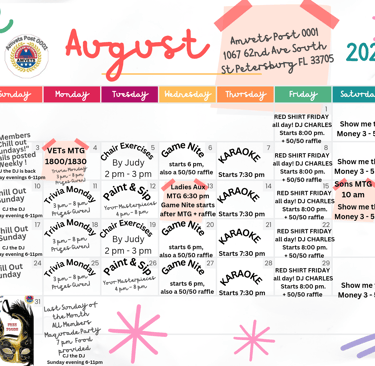 Amvets Post 0001
AMVETS
August
Amvets Post 0001
1067 62nd Ave South
St Petersburg FL 33705
202
Sunday
Monday
Tuesday
Wednesday
Thursday
Friday
Saturda
1
RED SHIRT FRIDAY
all day! DJ CHARLES
Starts 8:00 pm.
+ 50/50 raffle
Show me t
Money 3 - 5
Members
Chill out
Sundays!"
ails posted
Weekly !
CJ the DJ is back
day evening 6-11pm
3
VETs MTG
1800/1830
Trivia Monday
5pm - 8 pm
Prizes Given!
4
Chair Exercises
By Judy
2 pm - 3 pm
5
Game Nite
starts 6 pm,
also a 50/50 raffle
6
KARAOKE
Starts 7:30 pm
7
RED SHIRT FRIDAY
all day! DJ CHARLES
Starts 8:00 pm.
+ 50/50 raffle
8
Show me th
Money 3 - 5
Chill Out
Sunday
CJ the DJ
day evening 6-11pm
10
Trivia Monday
5 pm - 8 pm
Prizes Given!
11
Paint & Sip
Your Masterpieces
4 pm - 8 pm
12
Ladies Aux
MTG 6:30 pm
Game Nite starts
after MTG + raffle
13
KARAOKE
Starts 7:30 pm
14
RED SHIRT FRIDAY
all day! DJ CHARLES
Starts 8:00 pm.
+ 50/50 raffle
15
Sons MTG
10 am
Show me t
Money 3 - 5
Chill Out
Sunday
CJ the DJ
day evening 6-11pm
17
Trivia Monday
5 pm - 8 pm
Prizes Given!
18
Chair Exercises
By Judy
2 pm - 3 pm
19
Game Nite
starts 6 pm,
also a 50/50 raffle
20
KARAOKE
Starts 7:30 pm
21
RED SHIRT FRIDAY
all day! DJ CHARLES
Starts 8:00 pm.
+ 50/50 raffle
22
Show me t
Money 3 - 5
Chill Out
Sunday
24
Trivia Monday
5 pm - 8 pm
Prizes Given!
25
Paint & Sip
Your Masterpieces
4 pm - 8 pm
26
Game Nite
starts 6 pm,
also a 50/50 raffle
27
KARAOKE
Starts 7:30 pm
28
RED SHIRT FRIDAY
all day! DJ CHARLES
Starts 8:00 pm.
+ 50/50 raffle
29
Show me t
Money 3 - 5
31
Last Sunday of
the Month
ALL Members
Masquerade Party
7 pm, Food
provided
CJ the DJ
Sunday evening 6-11pm